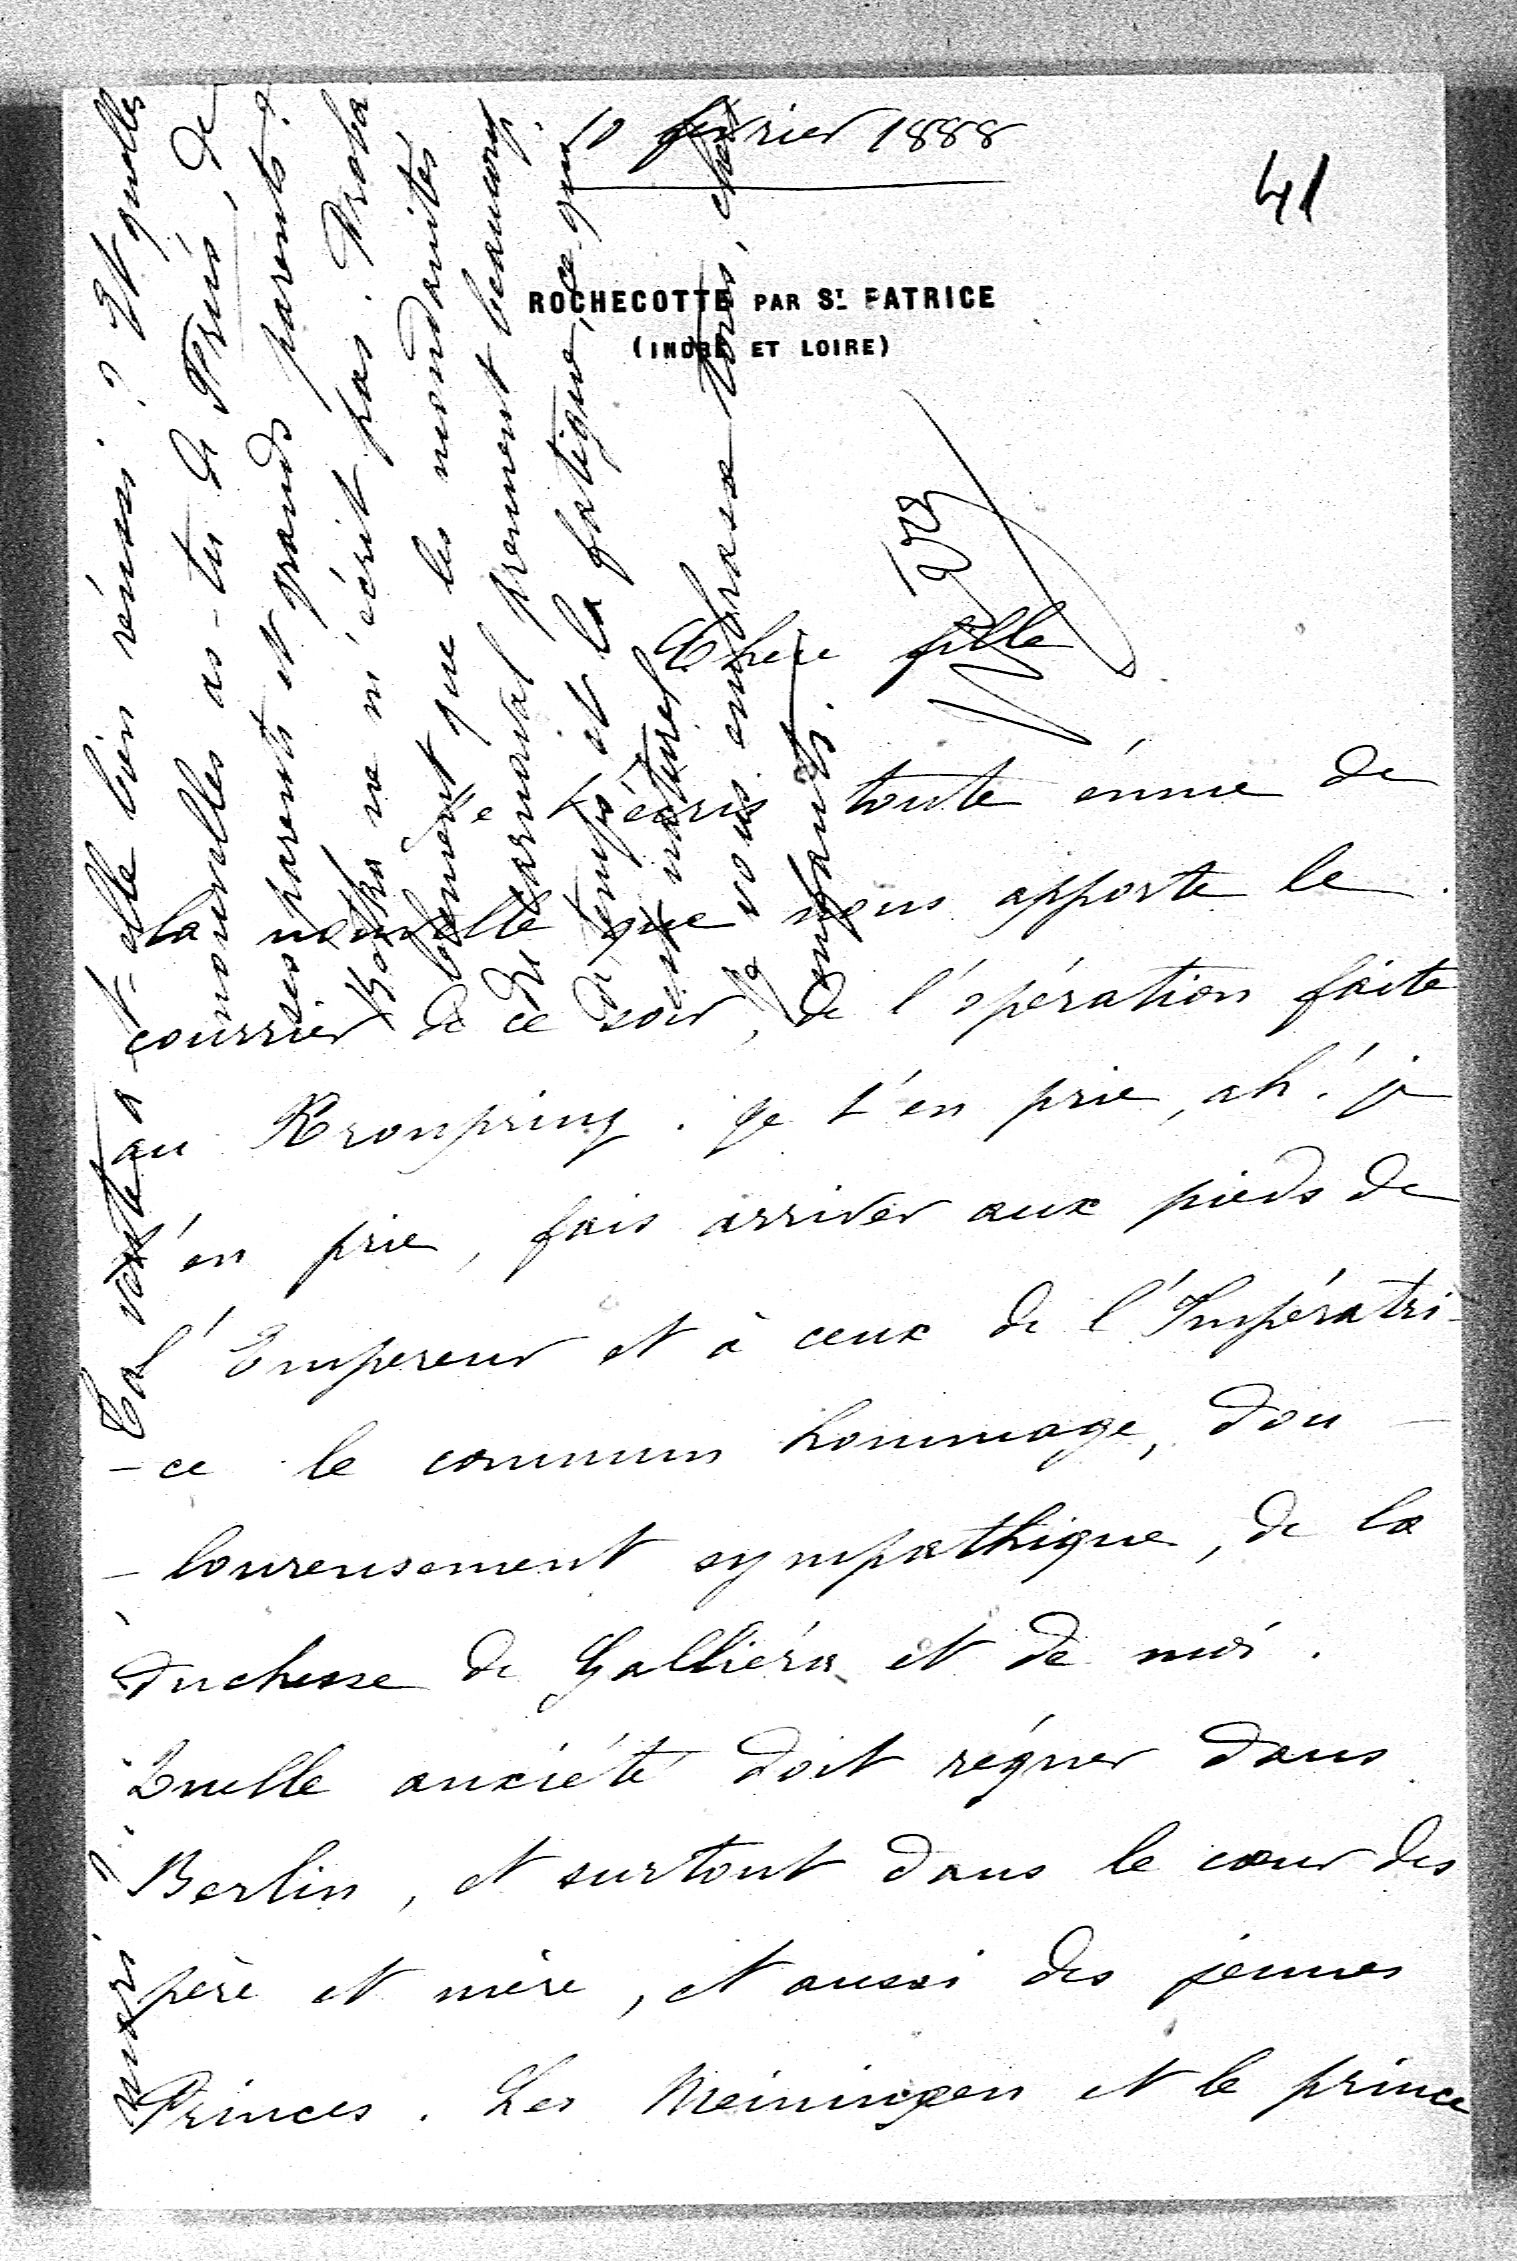 10 février 1888
41
ROCHECOTTE PAR ST PATRICE
(INDRE ET LOIRE)
Chère fille
Je t'écris toute émue de
la nouvelle que nous apporte le
courrier de ce soir, de l'opération faite
au Kronprinz. Je t'en prie, ah! je
t'en prie, fais arriver aux pieds de
l'Empereur et à ceux de l'Impératri-
-ce le commun hommage, dou-
-loureusement sympathique, de la
duchesse de Galliéra et de moi.
Quelle anxiété doit régner dans
Berlin, et surtout dans le cœur des
père et mère, et aussi des jeunes
Princes. Les Meiningen et le prince
mari ?
Ta vente a-t-elle bien réussi ? Et quelles
nouvelles as-tu de Paris, de
ses parents et grands parents ?
ne m'écrit pas. Proba
blement que les mondanités
du carnaval prennent beaucoup
de temps et la fatigue, ce qui
est naturel.
Je vous embrasse tous, chers
enfants.